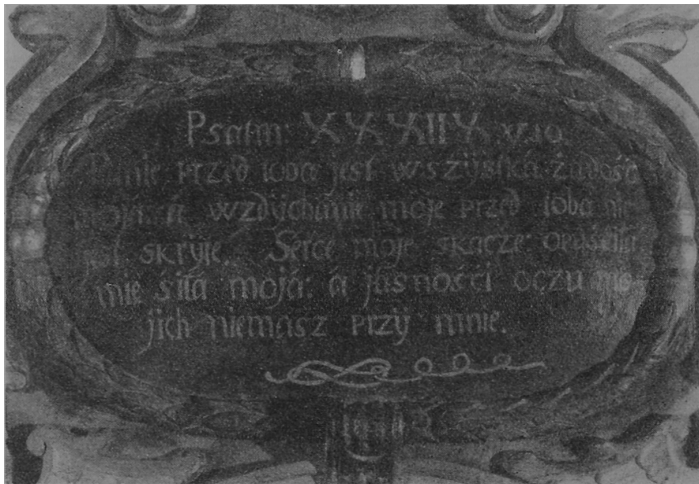 Psalm: XXXIIX v.10.
Panie przed tobą jest wszÿstka żądość
moja: á wzdÿchanie moje przed tobą nie
jest skrÿte. Serce moje skacze: opuściła
mie siła moja: á jasności oczu mo
jich niemasz przÿ mnie.